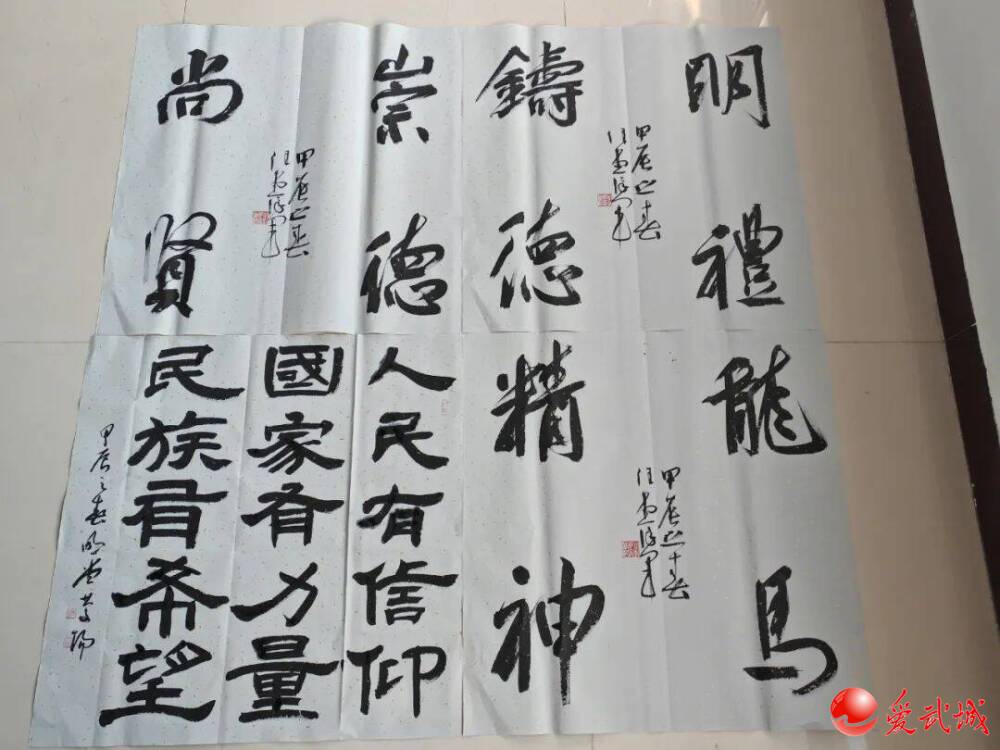 崇德
尚賢
甲辰之春
明禮
鑄德
甲辰之春
人民有信仰
國家有力量
民族有希望
甲辰之春
龍馬
精神
甲辰之春
爱武城